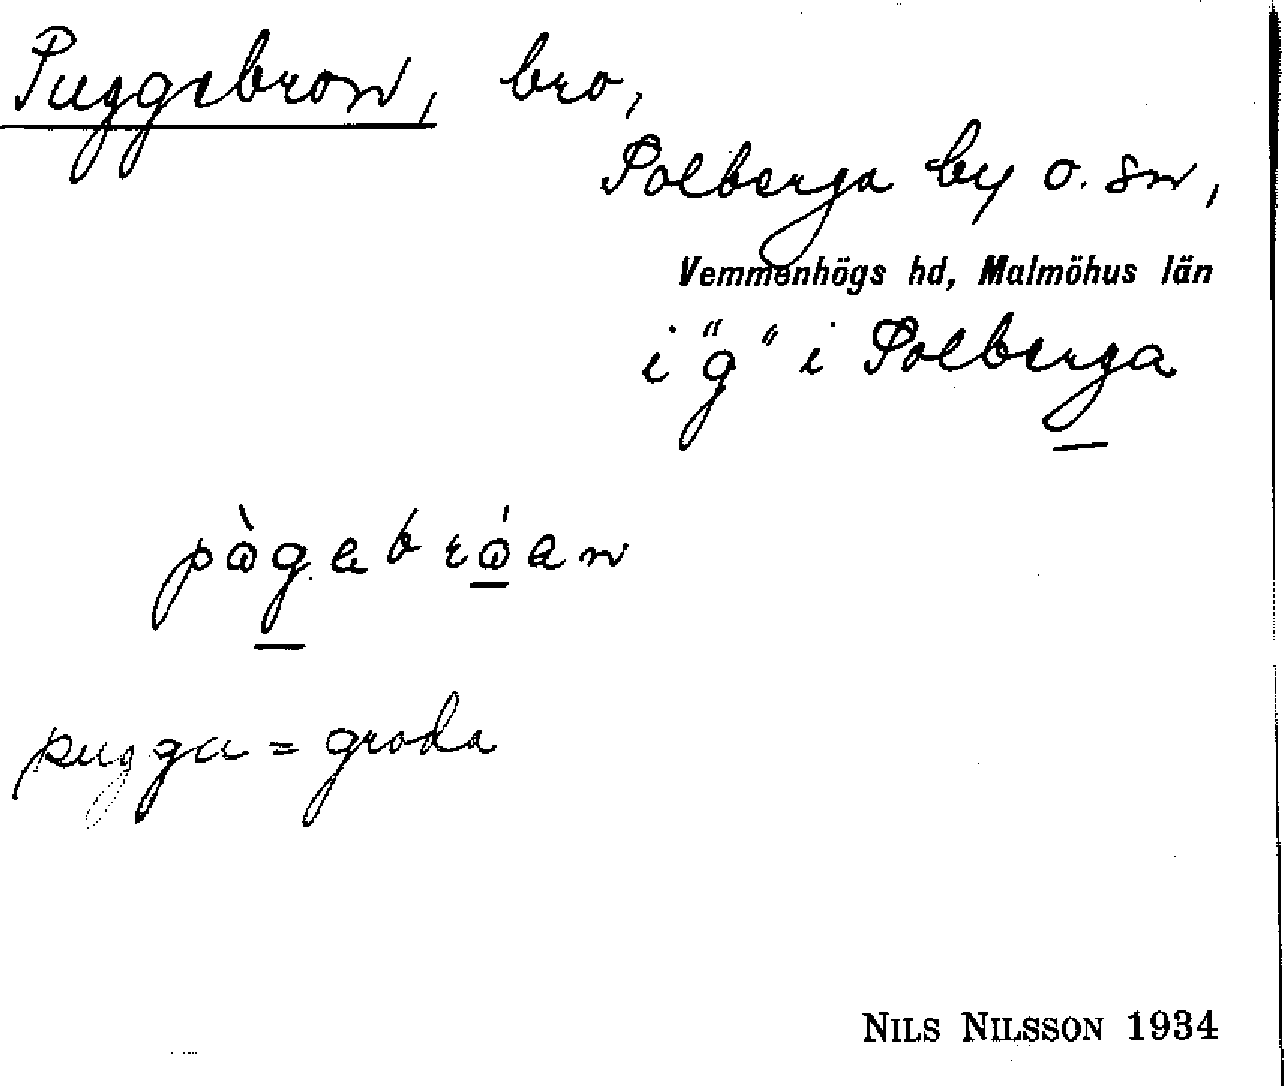 Puggebron, bro,
Solberga by o. sn,
Vemmenhögs hd, Malmöhus län
i "g" i Solberga
pùgabróan
pugga = groda
NILS NILSSON 1934